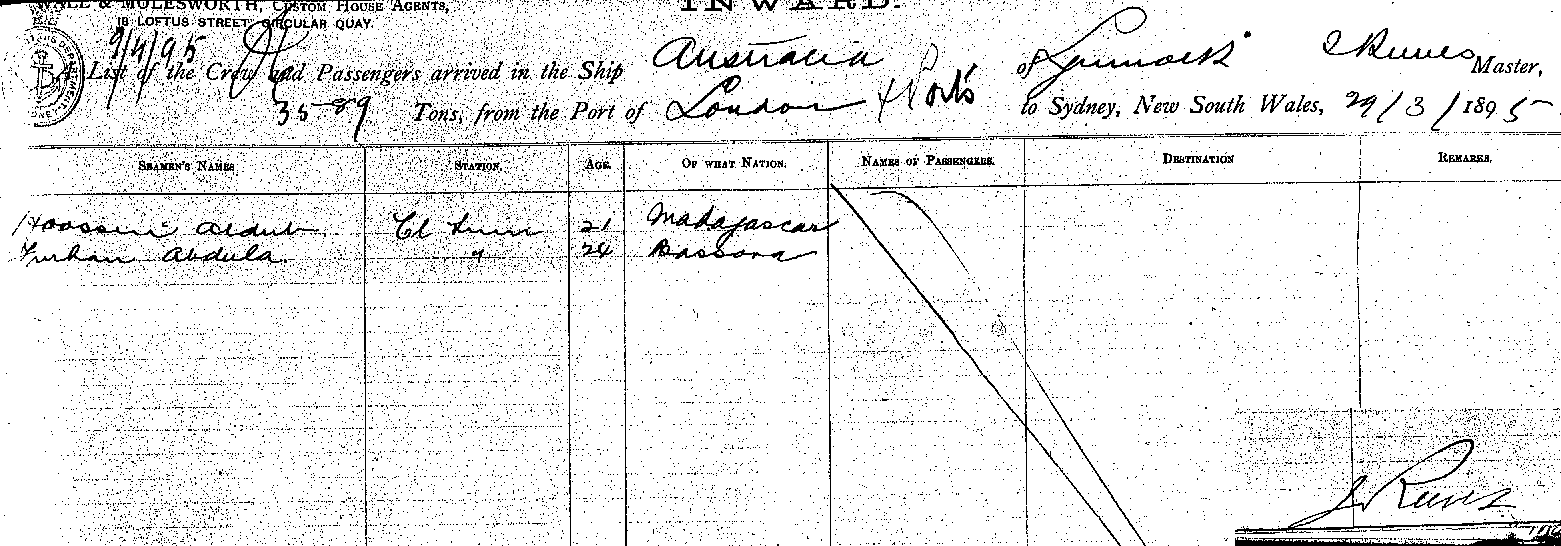 WALL & MOLESWORTH, CUSTOM HOUSE AGENTS,
18 LOFTUS STREET, CIRCULAR QUAY.
INWARD.
9/4/95
A List of the Crew and Passengers arrived in the Ship Australia of Greenock Master,
3589 Tons, from the Port of London & Ports to Sydney, New South Wales, 29/3/1895
SEAMEN'S NAMES STATION. AGE. OF WHAT NATION. NAMES OF PASSENGERS. DESTINATION REMARKS.
Hoossein 21 Madagascar
Furhan Abdula " 24 Bassora